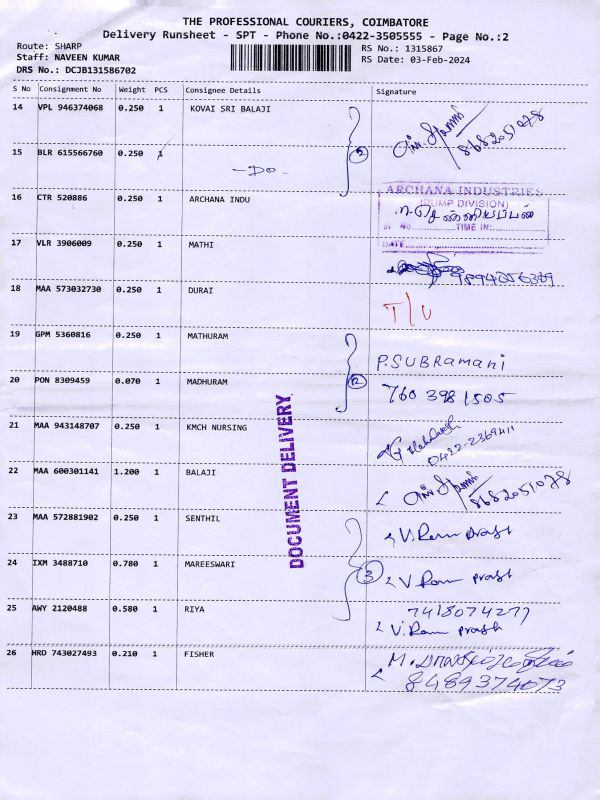 THE PROFESSIONAL COURIERS, COIMBATORE
Delivery Runsheet - SPT - Phone No.:0422-3505555 - Page No.:2
Route: SHARP
RS No.: 1315867
Staff: NAVEEN KUMAR
RS Date: 03-Feb-2024
DRS No.: DCJB131586702
S No Consignment No Weight PCS Consignee Details Signature
14 VPL 946374068 0.250 1 KOVAI SRI BALAJI
8682051078
15 BLR 615566760 0.250 1 -Do- 2
16 CTR 520886 0.250 1 ARCHANA INDU
ARCHANA INDUSTRIES
(PUMP DIVISION)
TIME IN:
DATE
17 VLR 3906009 0.250 1 MATHI
18 MAA 573032730 0.250 1 DURAI T/U
19 GPM 5360816 0.250 1 MATHURAM P.SUBRamani
20 PON 8309459 0.070 1 MADHURAM 2 760 398 1505
21 MAA 943148707 0.250 1 KMCH NURSING
0422-2369411
22 MAA 600301141 1.200 1 BALAJI 8682051078
23 MAA 572881902 0.250 1 SENTHIL V.Ram prash
24 IXM 3488710 0.780 1 MAREESWARI 3 V Ram prash
25 AWY 2120488 0.580 1 RIYA 7418074277
V.Ram prash
26 HRD 743027493 0.210 1 FISHER
8489374073
DOCUMENT DELIVERY